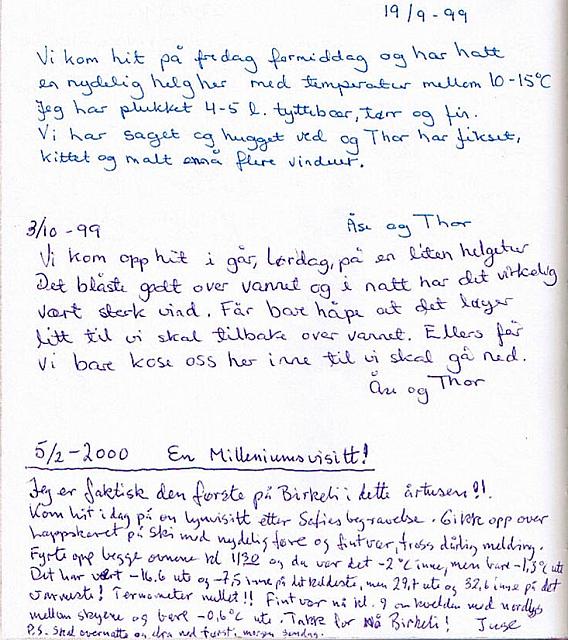 19/9-99
Vi kom hit på fredag formiddag og har hatt
en nydelig helg her med temperatur mellom 10-15°C
Jeg har plukket 4-5 l. tyttebær, tørr og fin.
Vi har saget og hugget ved og Thor har fikset,
kittet og malt ennå flere vinduer.
Åse og Thor
3/10-99
Vi kom opp hit i går, lørdag, på en liten helgetur
Det blåste godt over vannet og i natt har det virkelig
vært sterk vind. Får bare håpe at det løyer
litt til vi skal tilbake over vannet. Ellers får
vi bare kose oss her inne til vi skal gå ned.
Åse og Thor
5/2-2000 En Milleniumsvisitt!
Jeg er faktisk den første på Birkeli i dette årtusen!!.
Kom hit i dag på en lynvisitt etter Sofies begravelse. Gikk opp over
på ski med nydelig føre og fint vær, tross dårlig melding.
Fyrte opp begge ovnene kl 1130 og da var det -2°C inne, men bare -1,3°C ute
Det har vært -16,6 ute og -7,5 inne på det kaldeste, men 29,7 ute og 32,6 inne på det
varmeste! Termometer nullet!! Fint vær nå kl. 9 om kvelden med nordlys
mellom skyene og bare -0,6°C ute. Takk for nå Birkeli!
P.S. Skal overnatte og dra ned først i morgen søndag.